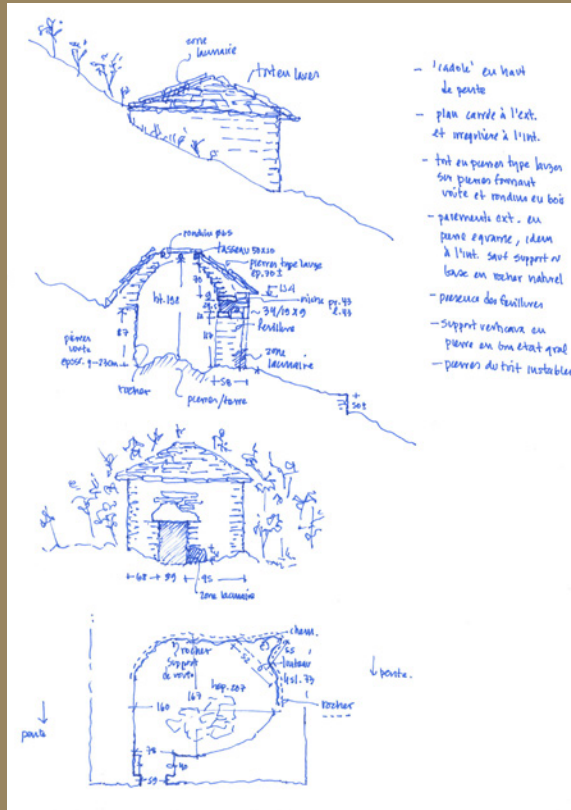 zone
lacunaire
toit en laves
- 'cadole' en haut
de pente
- plan carré à l'ext.
et irregulière à l'int.
- toit en pierres type lauzes
sur pierres formant
voute et rondins en bois
- parements ext. en
pierre equarrie, idem
à l'int. sauf support ou
base en rocher naturel
- presence des feuillures
- support verticaux en
pierre en bon etat gral
- pierres du toit instables
rondins
tasseau
pierres type lauze
niche
ht. 198
87
feuillure
pierres
voute
zone
lacunaire
rocher
pierres/terre
58
68 59 95
zone lacunaire
chem.
rocher
support
de voute
55
52
linteau
hsp. 207
167
160
pente
pente.
rocher
78
40
59